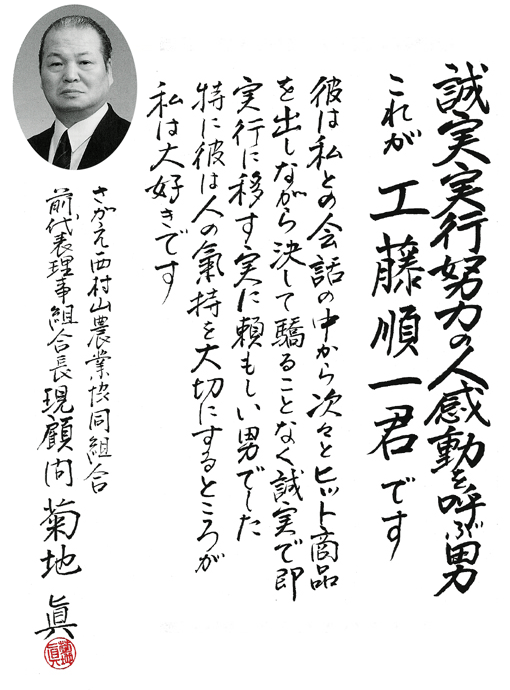 誠実実行努力の人感動を呼ぶ男
これが 工藤順一君です
彼は私との会話の中から次々とヒット商品
を出しながら決して驕ることなく誠実で即
実行に移す実に頼もしい男でした
特に彼は人の氣持を大切にするところが
私は大好きです
さがえ西村山農業協同組合
前代表理事組合長現顧問 菊地 眞
菊地眞